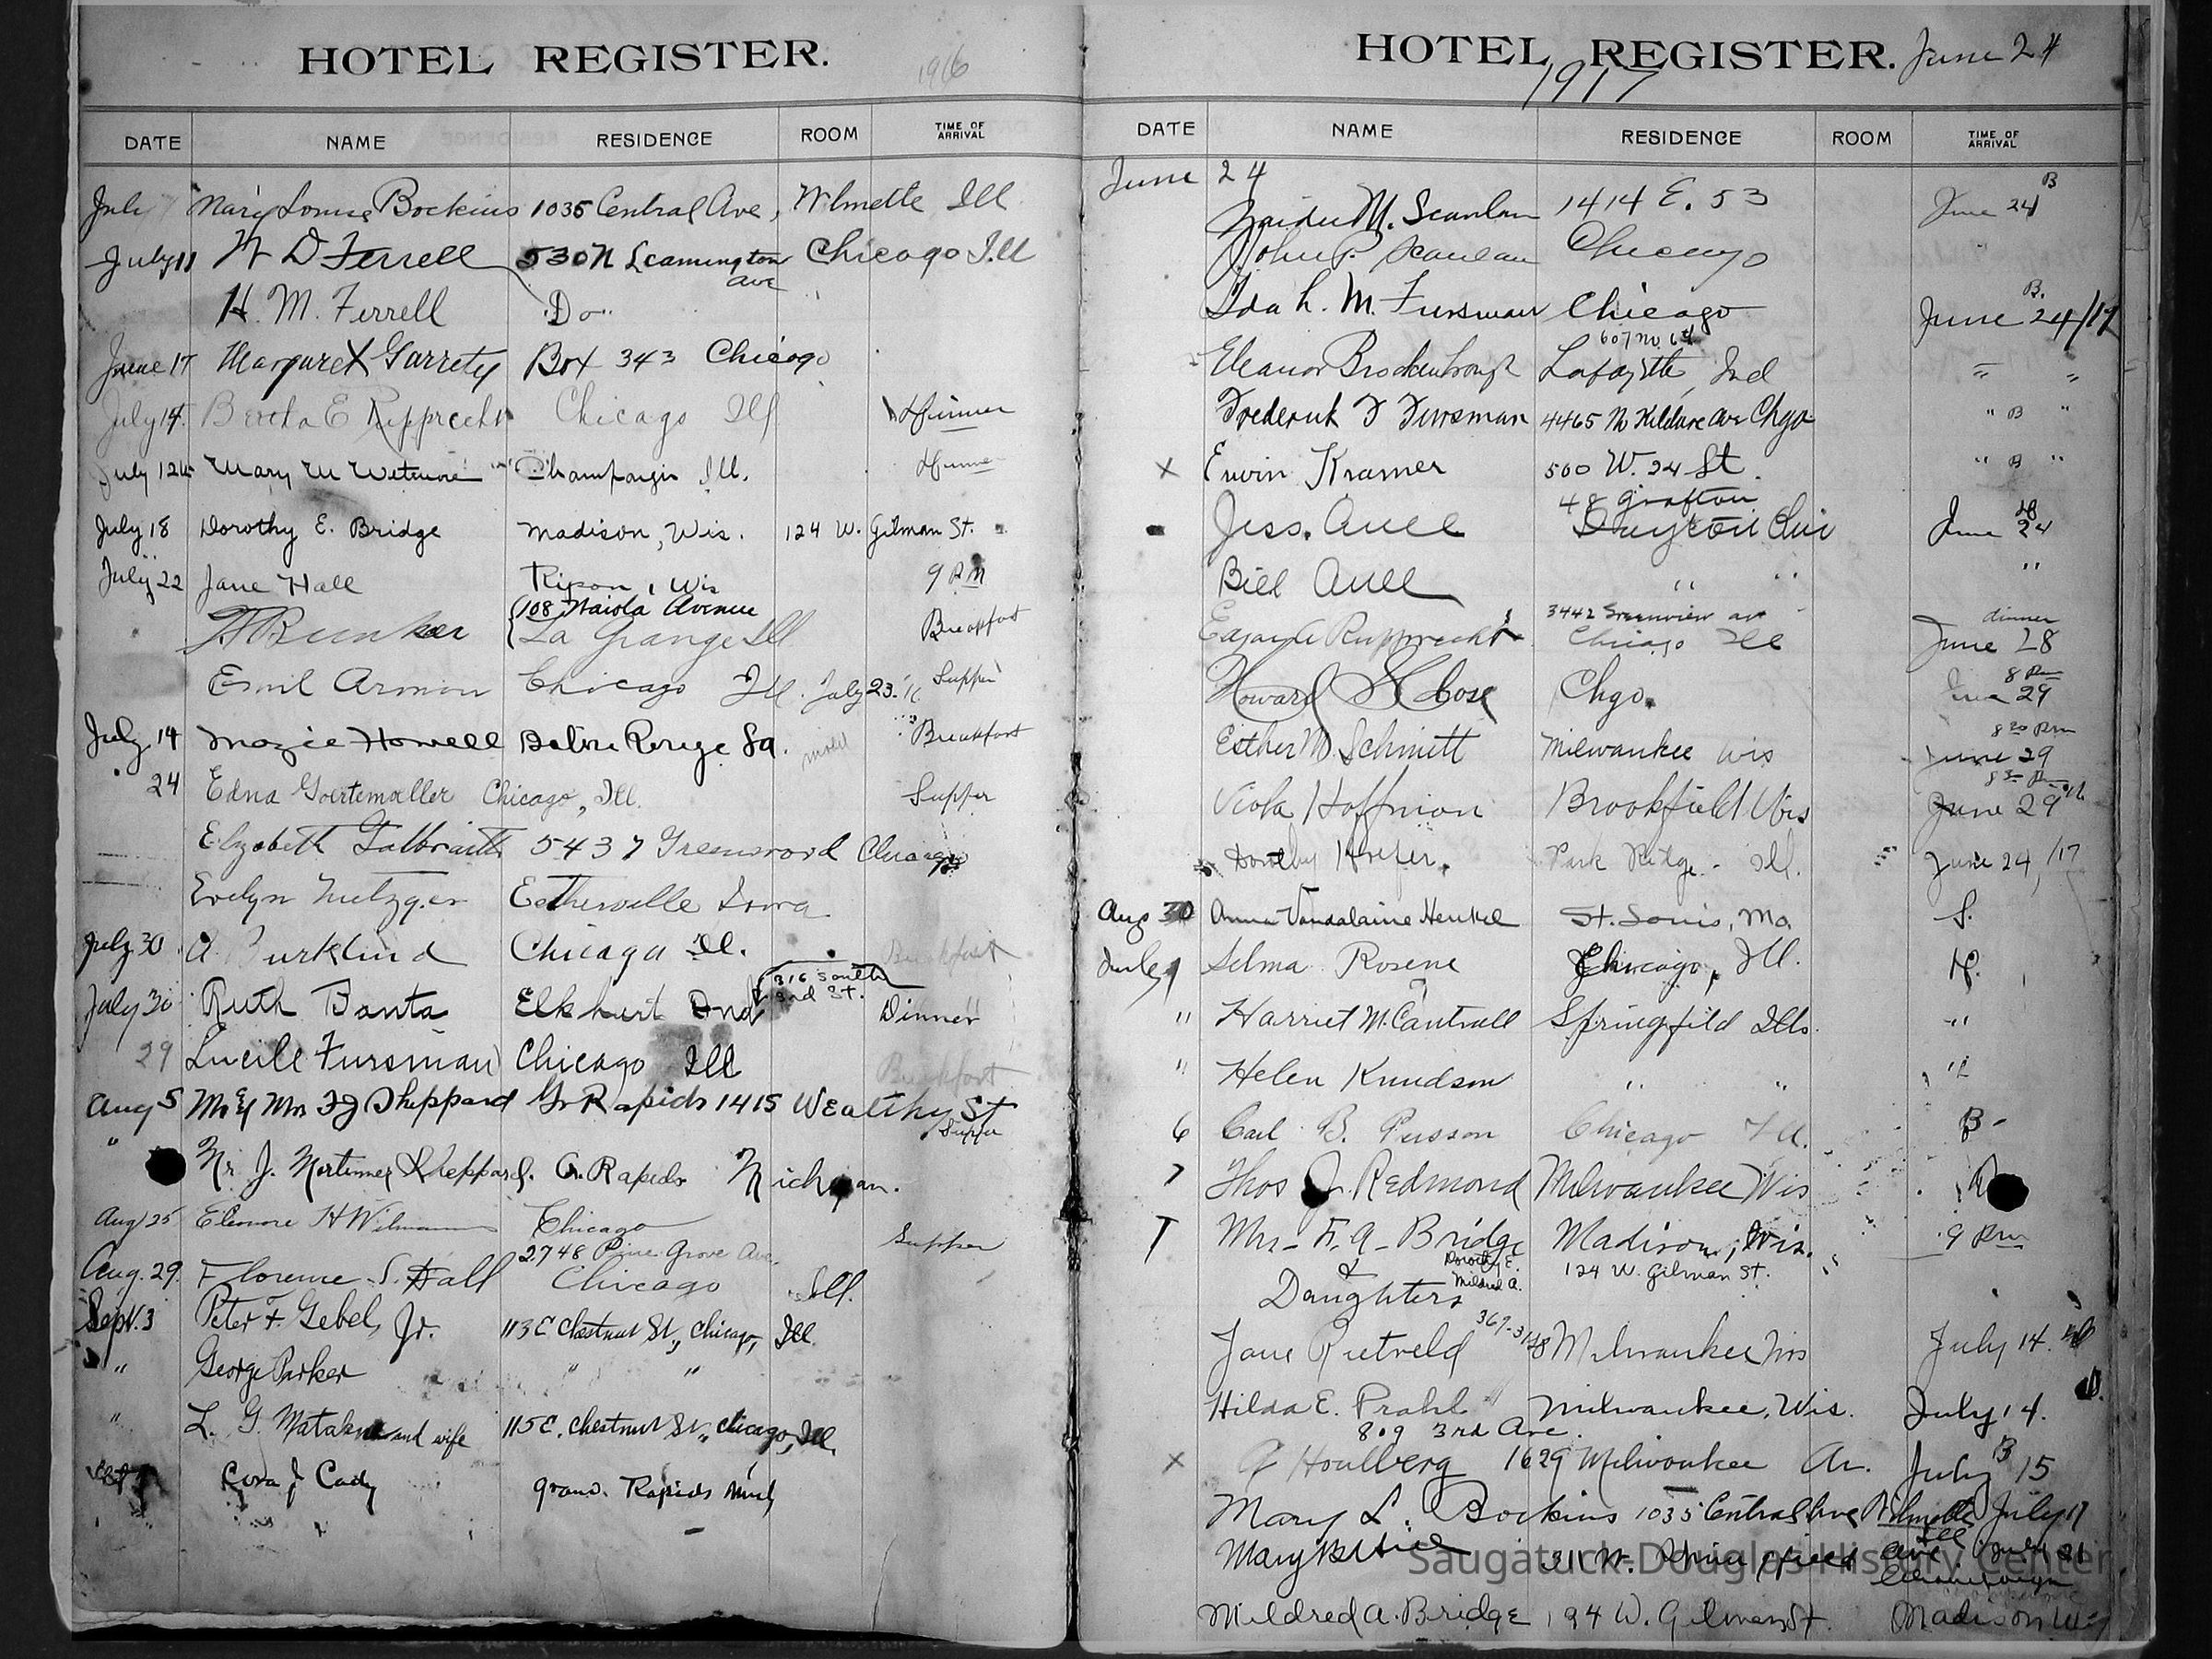 HOTEL REGISTER. 1916
DATE NAME RESIDENCE ROOM TIME OF ARRIVAL
July Mary Louise Bockius 1035 Central Ave, Wilmette Ill
July 11 W D Ferrell 530 N Leamington Ave Chicago Ill
H. M. Ferrell Do
June 17 Margaret Garrety Box 343 Chicago
July 14. Bertha E Rupprecht Chicago Ill Dinner
July 12 Mary M Wetmore Champaign Ill.
July 18 Dorothy E. Bridge Madison, Wis. 124 W. Gilman St.
July 22 Jane Hall Ripon, Wis 9 PM
Bunker 108 Waiola Avenue La Grange Ill Breakfast
Emil Armin Chicago Ill. July 23. 16 Supper
July 14 Mozie Howell Baton Rouge La. Breakfast
24 Edna Goertemoeller Chicago, Ill. Supper
Elizabeth Galbraith 5437 Greenwood Chicago
Evelyn Metzger Estherville Iowa
July 30 A Burklund Chicago Ill. Breakfast
July 30 Ruth Banta Elkhart Ind 316 South 3rd St. Dinner
29 Lucile Fursman Chicago Ill Breakfast
Aug 5 Mr & Mrs F J Sheppard Gr Rapids 1415 Wealthy St Supper
" Mr. J. Mortimer Sheppard. G. Rapids Michigan.
Aug 25 Eleonore H Wilmanns Chicago Supper
Aug. 29. Florence S. Hall 2748 Pine Grove Ave. Chicago Ill.
Sept. 3 Peter F. Gebel, Jr. 113 E Chestnut St., Chicago, Ill.
" George Parker " "
" L. G. and wife 115 E. Chestnut St., Chicago, Ill.
Cora J Cady Grand Rapids Mich
HOTEL REGISTER. June 24
1917
DATE NAME RESIDENCE ROOM TIME OF ARRIVAL
June 24
M. Scanlan 1414 E. 53 B June 24
John P. Scanlan Chicago
Ida L. M. Fursman Chicago B. June 24/17
Eleanor Brockenbrough 607 No. 6th Lafayette, Ind " "
Frederick F Fursman 4465 N Kildare Ave Chgo " B "
x Erwin Kramer 500 W. 24 St. " B "
Jess. Auel 48 Grafton Dayton June 24
Bill Auel " " "
Edgar A Rupprecht 3442 Greenview av Chicago Ill dinner June 28
Howard Close Chgo. 8 Pm June 29
Esther M Schmitt Milwaukee Wis 8 30 Pm June 29
Viola Hoffman Brookfield Wis June 29
Dorothy Hoefer. Park Ridge - Ill. June 24, /17
Aug 30 Anna Vandalaine Henkel St. Louis, Mo. S.
July 1 Selma Rosene Chicago, Ill.
" Harriet M. Cantrall Springfield Ills. "
" Helen Knudson " " "
6 Carl B. Pusson Chicago Ill. B -
7 Thos J. Redmond Milwaukee Wis
7 Mrs - F. A - Bridge Madison, Wis. 9 Pm
& Dorothy E. Mildred A. 124 W. Gilman St.
Daughters
Jane Rietveld Milwaukee Wis July 14.
Hilda E. Prahl Milwaukee, Wis. July 14.
809 3rd Ave.
x Houlberg 1629 Milwaukee Av. B July 15
Mary L. Bockius 1035 Central Ave Wilmette Ill July 17
311 W. July 21
Mildred A. Bridge 124 W. Gilman St. Madison Wis
Saugatuck-Douglas History Center